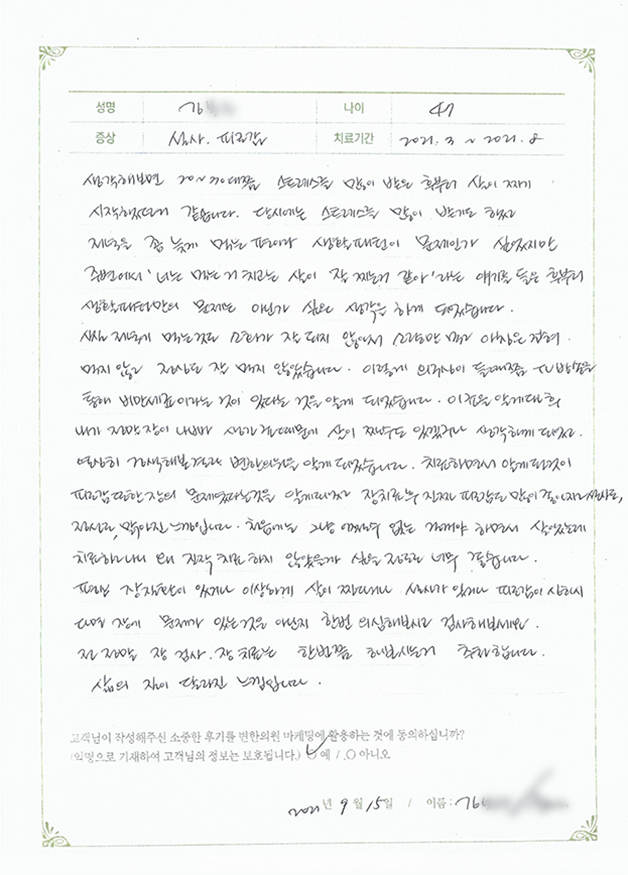 성명 강 나이 47
증상 설사. 피로감 치료기간 2021. 3 ~ 2021. 8
생각해보면 20~30대쯤 스트레스를 많이 받은 후부터 살이 찌기
시작하였던거 같습니다. 당시에는 스트레스를 많이 받기도 했고
저녁을 좀 늦게 먹는 편이라 생활패턴이 문제인가 싶었지만
주변에서 '너는 먹는거 치고는 살이 잘 찌는거 같아' 라는 얘기를 들은 후부터
생활패턴만의 문제는 아닌가 싶은 생각을 하게 되었습니다.
저녁에 먹는것도 소화가 잘 되지 않아서 소량만 먹고 야식은 전혀
먹지 않고 점심도 잘 먹지 않았습니다. 이렇게 의구심이 들때쯤 TV 방송을
통해 비만세포이라는 것이 있다는 것을 알게 되었습니다. 이것을 알게된 후
내가 정말 장이 나빠서 생기 때문에 살이 찔수도 있겠구나 생각하게 되었고
열심히 검색해본 결과 변한의원을 알게 되었습니다. 치료하면서 알게된것이
피로감 또한 장의 문제였다는것을 알게되었고 장치료후 진짜 피로감은 많이 좋아지고 설사도,
정신도 맑아진 느낌입니다. 처음에는 그냥 어쩔수 없는 거겠야 하면서 살았는데
치료하고나니 왜 진작 치료 하지 않았을까 싶을 정도로 너무 좋습니다.
평범 장질환이 있거나 이상하게 살이 찐다거나 설사가 있거나 피로감이 심하시
다면 장에 문제가 있는것은 아닌지 한번 의심해보시고 검사해보세요.
전 정말 장 검사. 장 치료는 한번쯤 해보시는거 추천합니다.
삶의 질이 달라진 느낌입니다.
고객님이 작성해주신 소중한 후기를 변한의원 마케팅에 활용하는 것에 동의하십니까?
(익명으로 기재하여 고객님의 정보는 보호됩니다.) ○ 예 / ○ 아니오
2021 년 9 월 15 일 / 이름 : 강